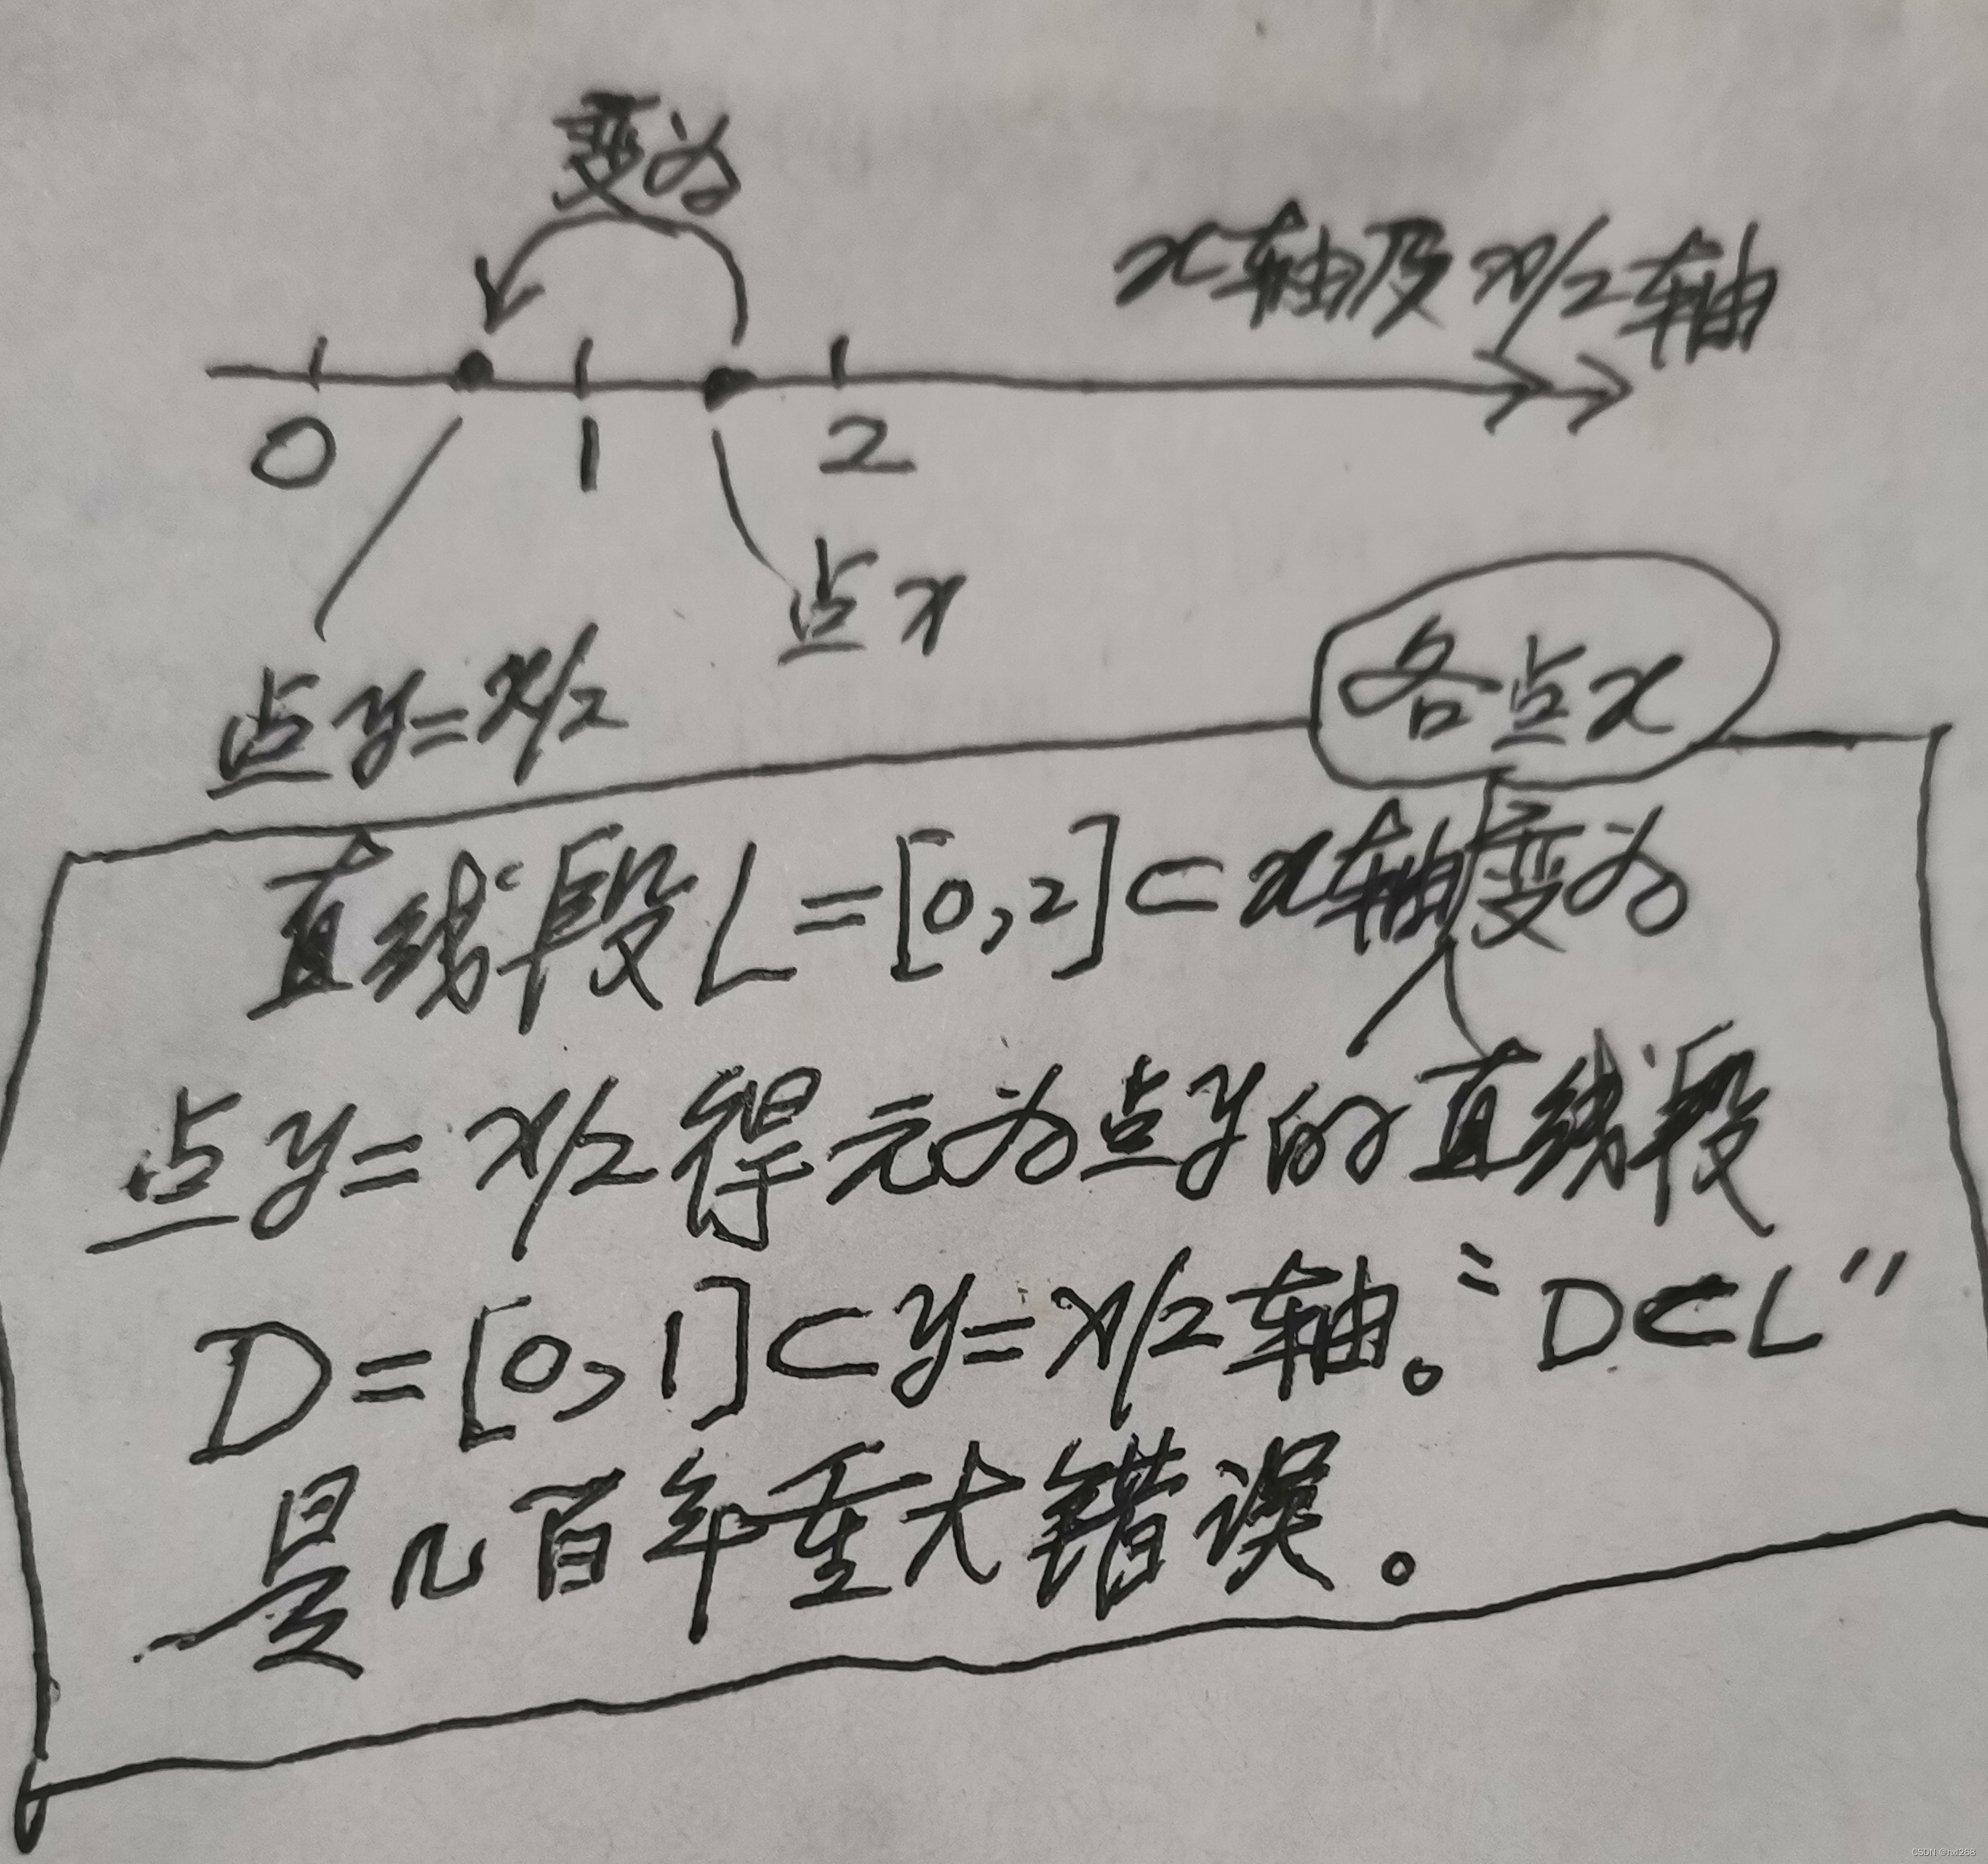 变为
x轴及x/2轴
0 1 2
点x
点y=x/2
各点x
直线段L=[0,2]⊂x轴变为
点y=x/2得元为点y的直线段
D=[0,1]⊂y=x/2轴。“D⊂L”
是几百年重大错误。
CSDN @hxl268